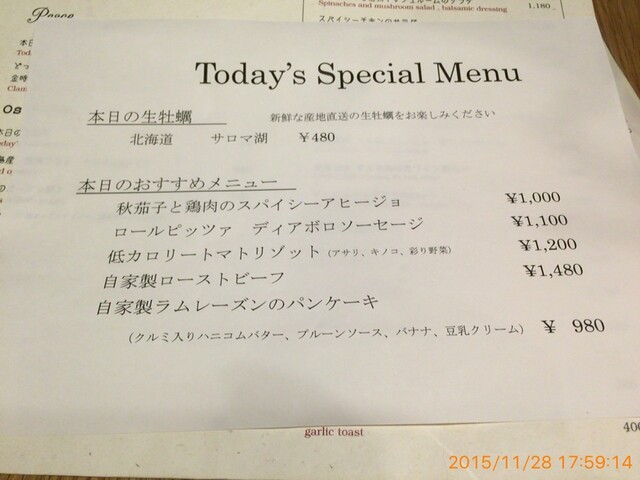 Spinaches and mushroom salad , balsamic dressing
1.180 .
Today's Special Menu
本日の生牡蠣 新鮮な産地直送の生牡蠣をお楽しみください
北海道 サロマ湖 ¥480
本日のおすすめメニュー
秋茄子と鶏肉のスパイシーアヒージョ ¥1,000
ロールピッツァ ディアボロソーセージ ¥1,100
低カロリートマトリゾット (アサリ、キノコ、彩り野菜) ¥1,200
自家製ローストビーフ ¥1,480
自家製ラムレーズンのパンケーキ
(クルミ入りハニコムバター、プルーンソース、バナナ、豆乳クリーム) ¥ 980
garlic toast
400
2015/11/28 17:59:14